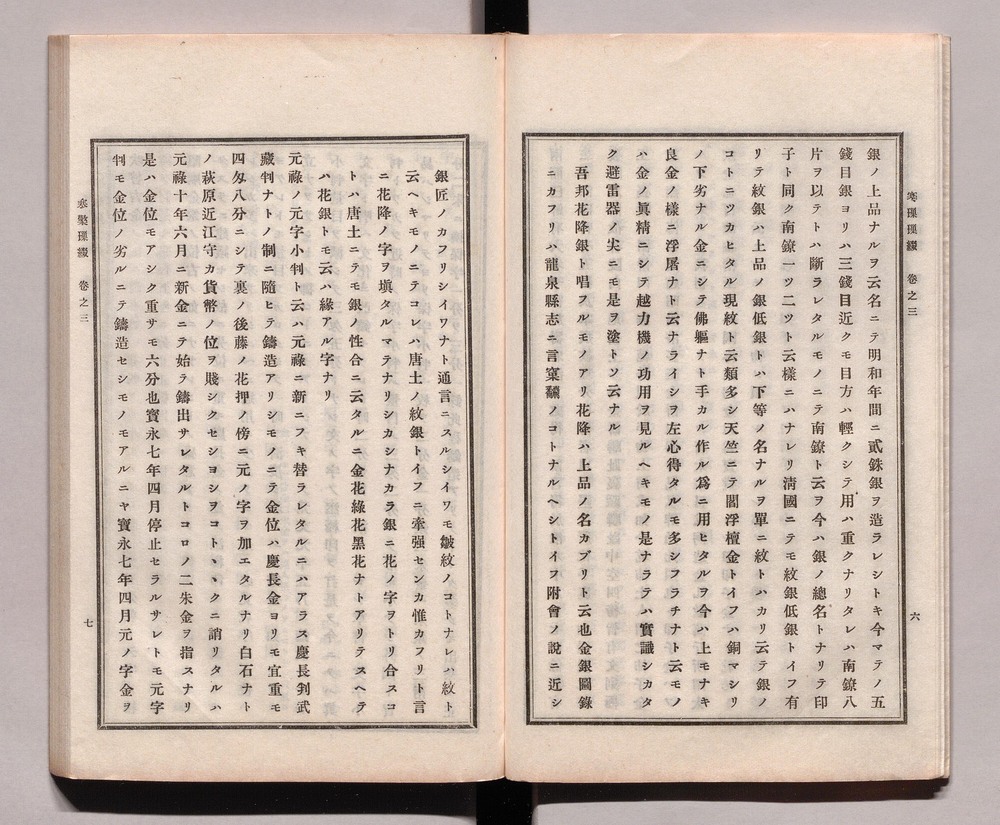 寒檠璅綴　卷之三
六
銀ノ上品ナルヲ云名ニテ明和年間ニ貳銖銀ヲ造ラレシトキ今マテノ五
錢目銀ヨリハ三錢目近クモ目方ハ輕クシテ用ハ重クナリタレハ南鐐八
片ヲ以テトハ斷ラレタルモノニテ南鐐ト云ヲ今ハ銀ノ總名トナリテ印
子ト同ク南鐐一ツ二ツト云樣ニハナレリ淸國ニテモ紋銀低銀トイフ有
リテ紋銀ハ上品ノ銀低銀トハ下等ノ名ナルヲ單ニ紋トハカリ云テ銀ノ
コトニツカヒタル現紋ト云類多シ天竺ニテ閻浮檀金トイフハ銅マシリ
ノ下劣ナル金ニシテ佛軀ナト手カル作ル爲ニ用ヒタルヲ今ハ上モナキ
良金ノ樣ニ浮屠ナト云ナライシヲ左心得タルモ多シフラチナト云モノ
ハ金ノ眞精ニシテ越力機ノ功用ヲ見ルヘキモノ是ナラテハ實識シカタ
ク避雷器ノ尖ニモ是ヲ塗トソ云ナル
吾邦花降銀ト唱フルモノアリ花降ハ上品ノ名カブリト云也金銀圖錄
ニカフリハ龍泉縣志ニ言窠䵟ノコトナルヘシトイフ附會ノ說ニ近シ
銀匠ノカフリシイワナト通言ニスルシイワモ皺紋ノコトナレハ紋ト
云ヘキモノニテコレハ唐土ノ紋銀トイフニ牽强センカ惟カフリト言
ニ花降ノ字ヲ塡タルマテナリシカシナカラ銀ニ花ノ字ヲトリ合スコ
トハ唐土ニテモ銀ノ性合ニ云タルニ金花綠花黑花ナトアリテスヘテ
ハ花銀トモ云ハ緣アル字ナリ
元祿ノ元字小判ト云ハ元祿ニ新ニフキ替ラレタルニハアラス慶長判武
藏判ナトノ制ニ隨ヒテ鑄造アリシモノニテ金位ハ慶長金ヨリモ宜重モ
四匁八分ニシテ裏ノ後藤ノ花押ノ傍ニ元ノ字ヲ加エタルナリ白石ナト
ノ萩原近江守カ貨幣ノ位ヲ賤シクセシヨシヲコト〻〻クニ誚リタルハ
元祿十年六月ニ新金ニテ始テ鑄出サレタルトコロノ二朱金ヲ指スナリ
是ハ金位モアシク重サモ六分也寶永七年四月停止セラルサレトモ元字
判モ金位ノ劣ルニテ鑄造セシモノモアルニヤ寶永七年四月元ノ字金ヲ
寒檠璅綴　卷之三
七